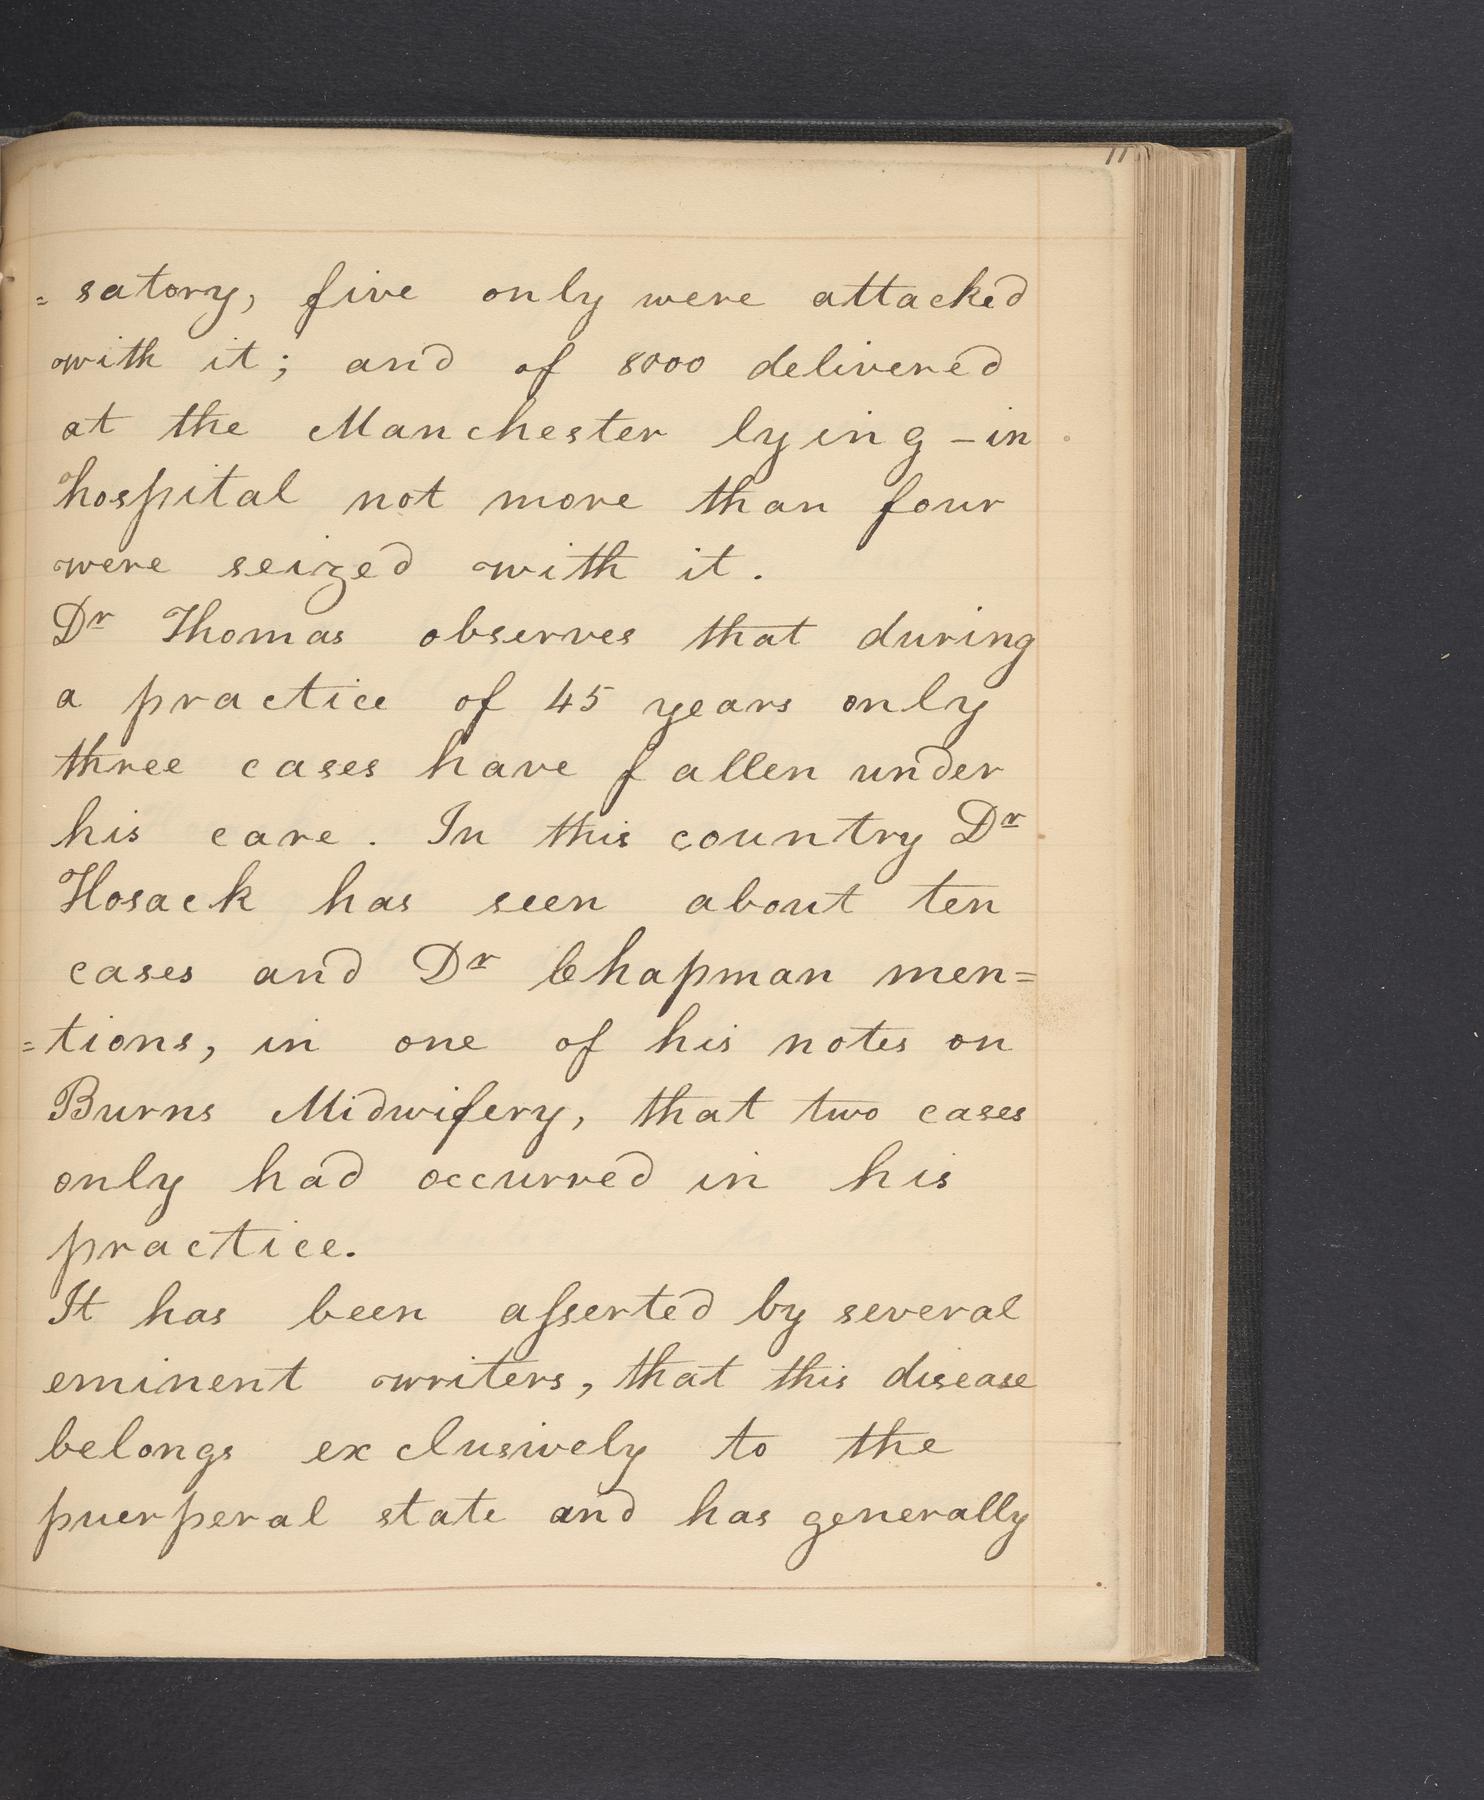 11
= satory, five only were attacked
with it; and of 8000 delivered
at the Manchester lying-in
hospital not more than four
were seized with it.
Dr Thomas observes that during
a practice of 45 years only
three cases have fallen under
his care. In this country Dr
Hosack has seen about ten
cases and Dr Chapman men=
=tions, in one of his notes on
Burns Midwifery, that two cases
only had occurred in his
practice.
It has been aſserted by several
eminent writers, that this disease
belongs exclusively to the
puerperal state and has generally